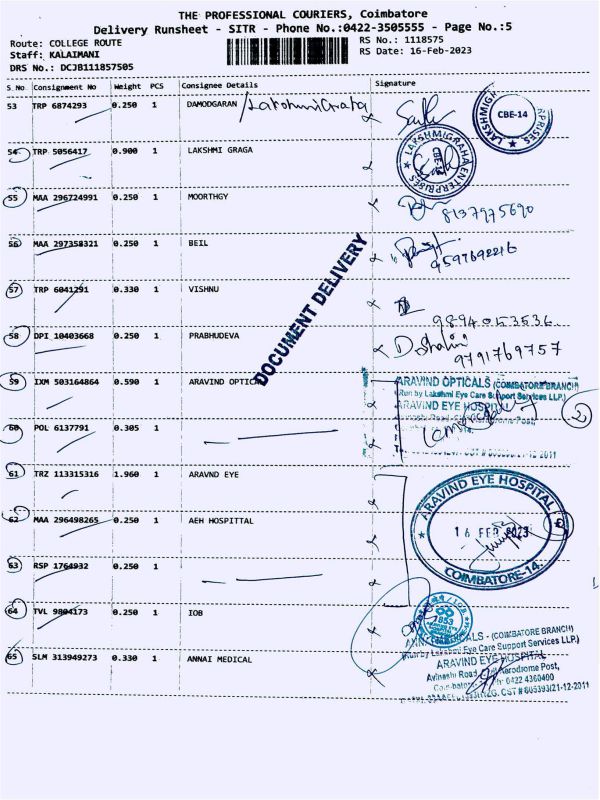 THE PROFESSIONAL COURIERS, Coimbatore
Delivery Runsheet - SITR - Phone No.:0422-3505555 - Page No.:5
Route: COLLEGE ROUTE
Staff: KALAIMANI
DRS No.: DCJB111857505
RS No.: 1118575
RS Date: 16-Feb-2023
S.No Consignment No Weight PCS Consignee Details Signature
53 TRP 6874293 0.250 1 DAMODGARAN / Lakshmi Graha
LAKSHMIGR PRISES CBE-14
54 TRP 5056417 0.900 1 LAKSHMI GRAGA
LAKSHMIGRAHA ENTERPRISES CBE-14
55 MAA 296724991 0.250 1 MOORTHGY
8137975690
56 MAA 297358321 0.250 1 BEIL
9597692216
57 TRP 6041291 0.330 1 VISHNU
9894053536
DOCUMENT DELIVERY
58 DPI 10403668 0.250 1 PRABHUDEVA
D Shalini
9791769757
59 IXM 503164864 0.590 1 ARAVIND OPTICA
ARAVIND OPTICALS (COIMBATORE BRANCH)
(Run by Lakshmi Eye Care Support Services LLP.)
ARAVIND EYE HOSPITAL
2
60 POL 6137791 0.305 1
61 TRZ 113315316 1.960 1 ARAVND EYE
ARAVIND EYE HOSPITAL
16 FEB 2023
COIMBATORE-14.
62 MAA 296498265 0.250 1 AEH HOSPITTAL
63 RSP 1764932 0.250 1
64 TVL 9804173 0.250 1 IOB
1853
- (COIMBATORE BRANCH)
(Run by Lakshmi Eye Care Support Services LLP.)
65 SLM 313949273 0.330 1 ANNAI MEDICAL
ARAVIND EYE HOSPITAL
Avinashi Road Aerodrome Post,
0422 4360400
CST # 805393/21-12-2011